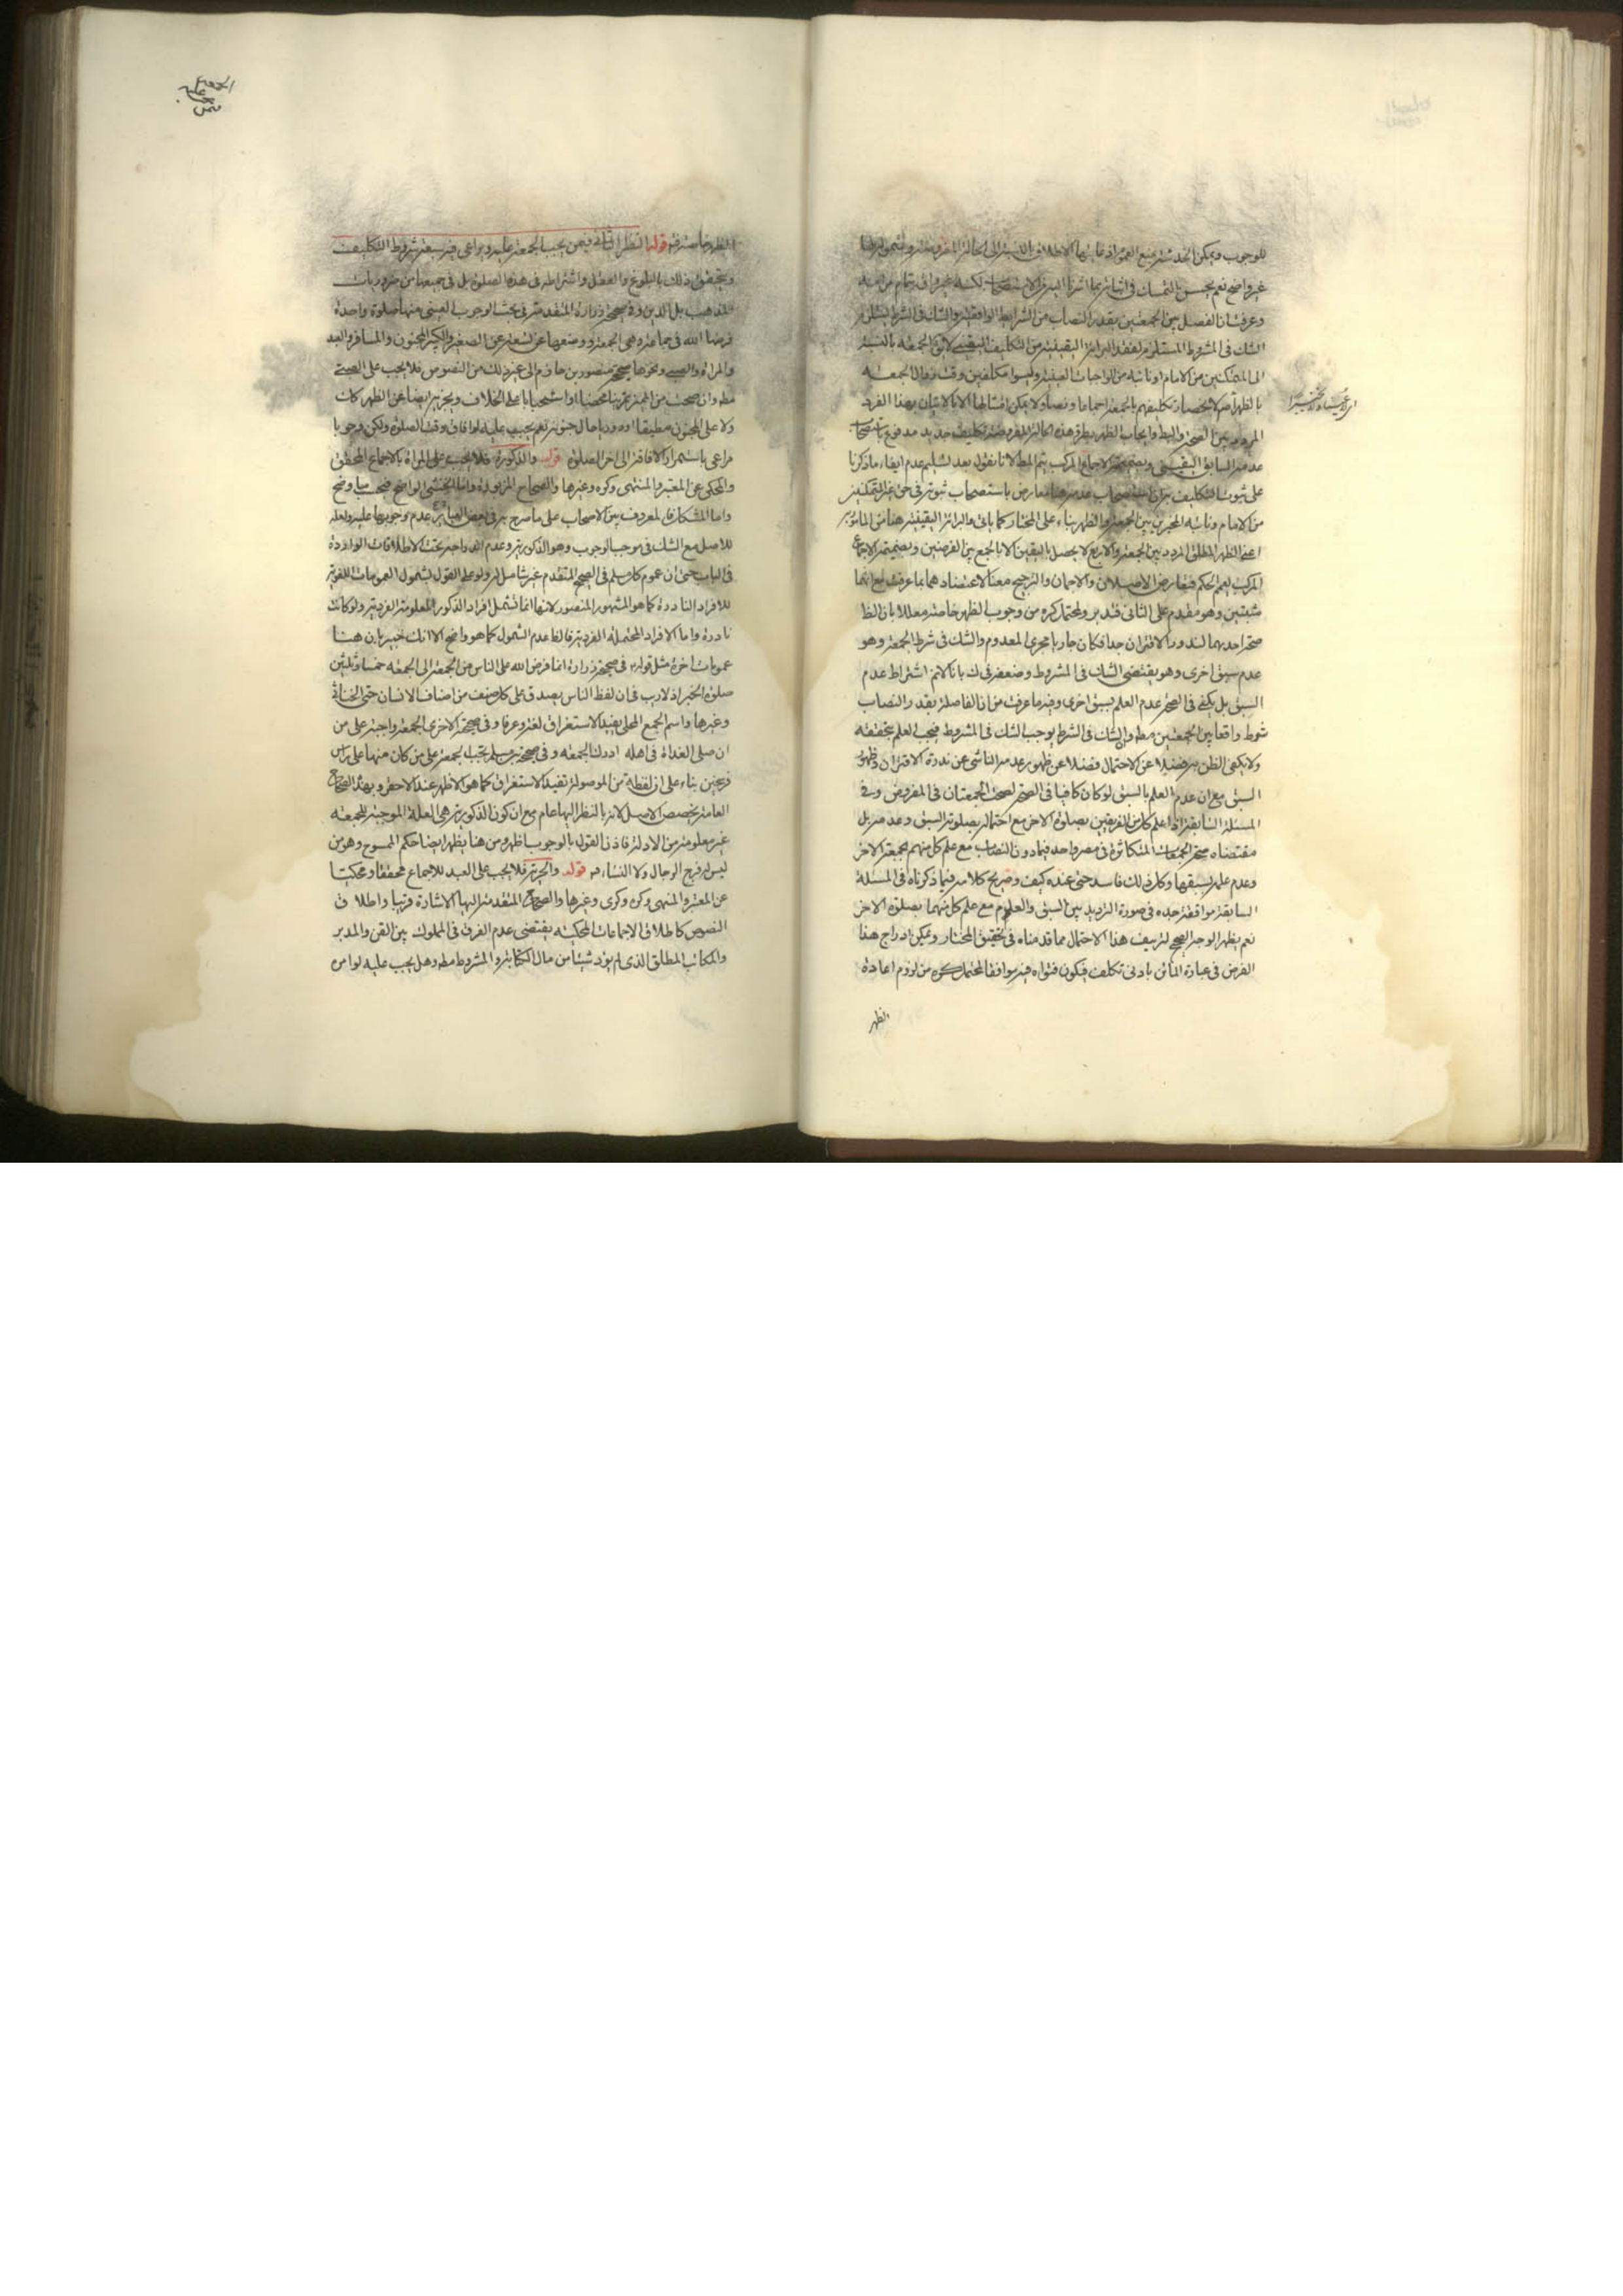 للوجوب ويمكن الخدشة بمنع العموم اذ غايتها الاطلاق بالنسبة الى الحالة المفروضة وشمولها
غير واضح نعم يحسن بالتمسك في اثباته بما اشرنا اليه من الاستصحاب لكنه غير واف بتمام
وعرفت ان الفصل بين الجمعتين بقدر النصاب من الشرايط الواقعية والشك في الشرط يستلزم
الشك في المشروط المستلزم لفقد البرائة اليقينية من التكليف اليقيني لا يق الجمعه بالنسبة
الى المتمكنين من الامام او نائبه من الواجبات العينية وليسوا مكلفين وقت زوال الجمعه
بالظهر اصلا لانحصار تكليفهم بالجمعة اجماعا ونصا ولا يمكن امتثالها الا بالاتيان بهذا الفرد
المردد بين الصحة والبط وايجاب الظهر بطرو هذه الحالة المفروضة تكليف جديد مدفوع باستصحاب
عدمه السابق اليقيني وبضميمة الاجماع المركب يتم المط لانا نقول بعد تسليم عدم ايفاء ماذكرنا
على ثبوت التكليف به ان استصحاب عدمه هنا معارض باستصحاب ثبوته في حق غير المتمكنين
من الامام ونائبه المخيرين بين الجمعة والظهر بناء على المختار كما ياتي والبرائة اليقينية هنا من المامور به
اعني الظهر المطلق المردد بين الجمعة والاربع لا يحصل باليقين الا بالجمع بين الفرضين وبضميمة الاجماع
المركب يعم الحكم فتعارض الاصلان والاجماعان والترجيح معنا لاعتضادهما بما عرفت مع انهما
مثبتين وهو مقدم على الثاني فتدبر ولمحتمل كره من وجوب الظهر خاصة معللا بان الظ
صحة احديهما لندور الاقتران جدا فكان جاريا مجرى المعدوم والشك في شرط الجمعة وهو
عدم سبق اخرى وهو يقتضي الشك في المشروط وضعفه في ك بانا لانم اشتراط عدم
السبق بل يكفي في الصحة عدم العلم بسبق اخرى وفيه ما عرفت من ان الفاصلة بقدر النصاب
شرط واقعا بين الجمعتين مطه والشك في الشرط يوجب الشك في المشروط فيجب العلم بتحققه
ولا يكفي الظن به فضلا عن الاحتمال فضلا عن ظهور عدمه الناشي عن ندرة الاقتران وظهور
السبق مع ان عدم العلم بالسبق لو كان كافيا في الصحة لصحت الجمعتان في المفروض وفي
المسئلة السابقة اذا علم كل من الفريقين بصلوة الاخر مع احتماله بصلوته السبق وعدمه بل
مقتضاه صحة الجمعات المتكاثرة في مصر واحد فيما دون النصاب مع علم كل منهم بجمعة الاخر
وعدم علمه بسبقها وكل ذلك فاسد حتى عنده كيف وصريح كلامه فيما ذكرناه في المسئلة
السابقة موافقة جده في صورة الترديد بين السبق والعلم مع علم كل منهما بصلوة الاخر
نعم يظهر الوجه الصحيح لتزييف هذا الاحتمال مما قدمناه في تحقيق المختار ويمكن ادراج هذا
الفرض في عبارة الماتن بادنى تكلف فيكون فتواه فيه موافقا لمحتمل كره من لزوم اعادة
الظهر
الظهر خاصة فيه قوله النظر الثاني فيمن يجب الجمعة عليه ويراعى فيه سبعة شروط التكليف
ويتحقق ذلك بالبلوغ والعقل واشتراطه في هذه الصلوة بل في جميعها من ضروريات
المذهب بل الدين وفي صحيحة زرارة المتقدمة في بحث الوجوب العيني منها صلوة واحدة
فرضها الله في جماعة وهي الجمعة ووضعها عن تسعة عن الصغير والكبير والمجنون والمسافر والعبد
والمراة ونحوها صحيحة منصور بن حازم الى غير ذلك من النصوص فلا يجب على الصبي
مطه وان صحت من المميز تمرينا محضا او استحبابا على الخلاف ويجزيه ايضا عن الظهر كانت
ولا على المجنون مطبقا او دوريا حال جنونه نعم يجب عليه لو افاق وقت الصلوة ولكن وجوبا
مراعى باستمرار الافاقة الى اخر الصلوة قوله والذكورة فلا يجب على المراة بالاجماع المحقق
والمحكي عن المعتبر والمنتهى وكره وغيرها والصحاح المزبورة واما الخنثى الواضح فبحسب ما وضح
واما المشكل فالمعروف بين الاصحاب على ما صرح به في بعض العبائر عدم وجوبها عليه ولعله
للاصل مع الشك في موجب الوجوب وهو الذكورية وعدم اندراجه تحت الاطلاقات الواردة
في الباب حتى ان عموم كل مسلم في الصحيح المتقدم غير شامل له ولو على القول بشمول العمومات اللغوية
للافراد النادرة كما هو المشهور المنصور لانها انما تشمل افراد الذكور المعلومة الفردية ولو كانت
نادرة واما الافراد المحتملة الفردية فالظ عدم الشمول كما هو واضح الا انك خبير بان هنا
عمومات اخرة مثل قوله في صحيحة زرارة انما فرض الله على الناس من الجمعة الى الجمعه خمسا وثلثين
صلوة الخبر اذ لا ريب في ان لفظ الناس يصدق على كل صنف من اصناف الانسان حتى الخناثى
وغيرها واسم الجمع المحلى يفيد الاستغراق لغة وعرفا وفي صحيحته الاخرى الجمعة واجبة على من
ان صلى الغداة في اهله ادرك الجمعه وفي صحيحة مسلم تجب الجمعة على من كان منها على راس
فرسخين بناء على ان لفظة من الموصولة تفيد الاستغراق كما هو الاظهر عند الاحقر وبهذه الصحاح
العامة يخصص الاصل لانه بالنظر اليها عام مع ان كون الذكورية هي العلة الموجبة للجمعه
غير معلومة من الادلة فاذن القول بالوجوب اظهر ومن هنا يظهر ايضا حكم الممسوح وهو من
ليس له فرج الرجال ولا النساء قوله والحرية فلا يجب على العبد للاجماع محققا ومحكيا
عن المعتبر والمنتهى وكره وكرى وغيرها والصحاح المتقدمة اليها الاشارة قريبا واطلاق
النصوص كاطلاق الاجماعات المحكيه يقتضي عدم الفرق في المملوك بين القن والمدبر
والمكاتب المطلق الذي لم يؤد شيئا من مال الكتابة والمشروط مطه وهل يجب عليه لو امره